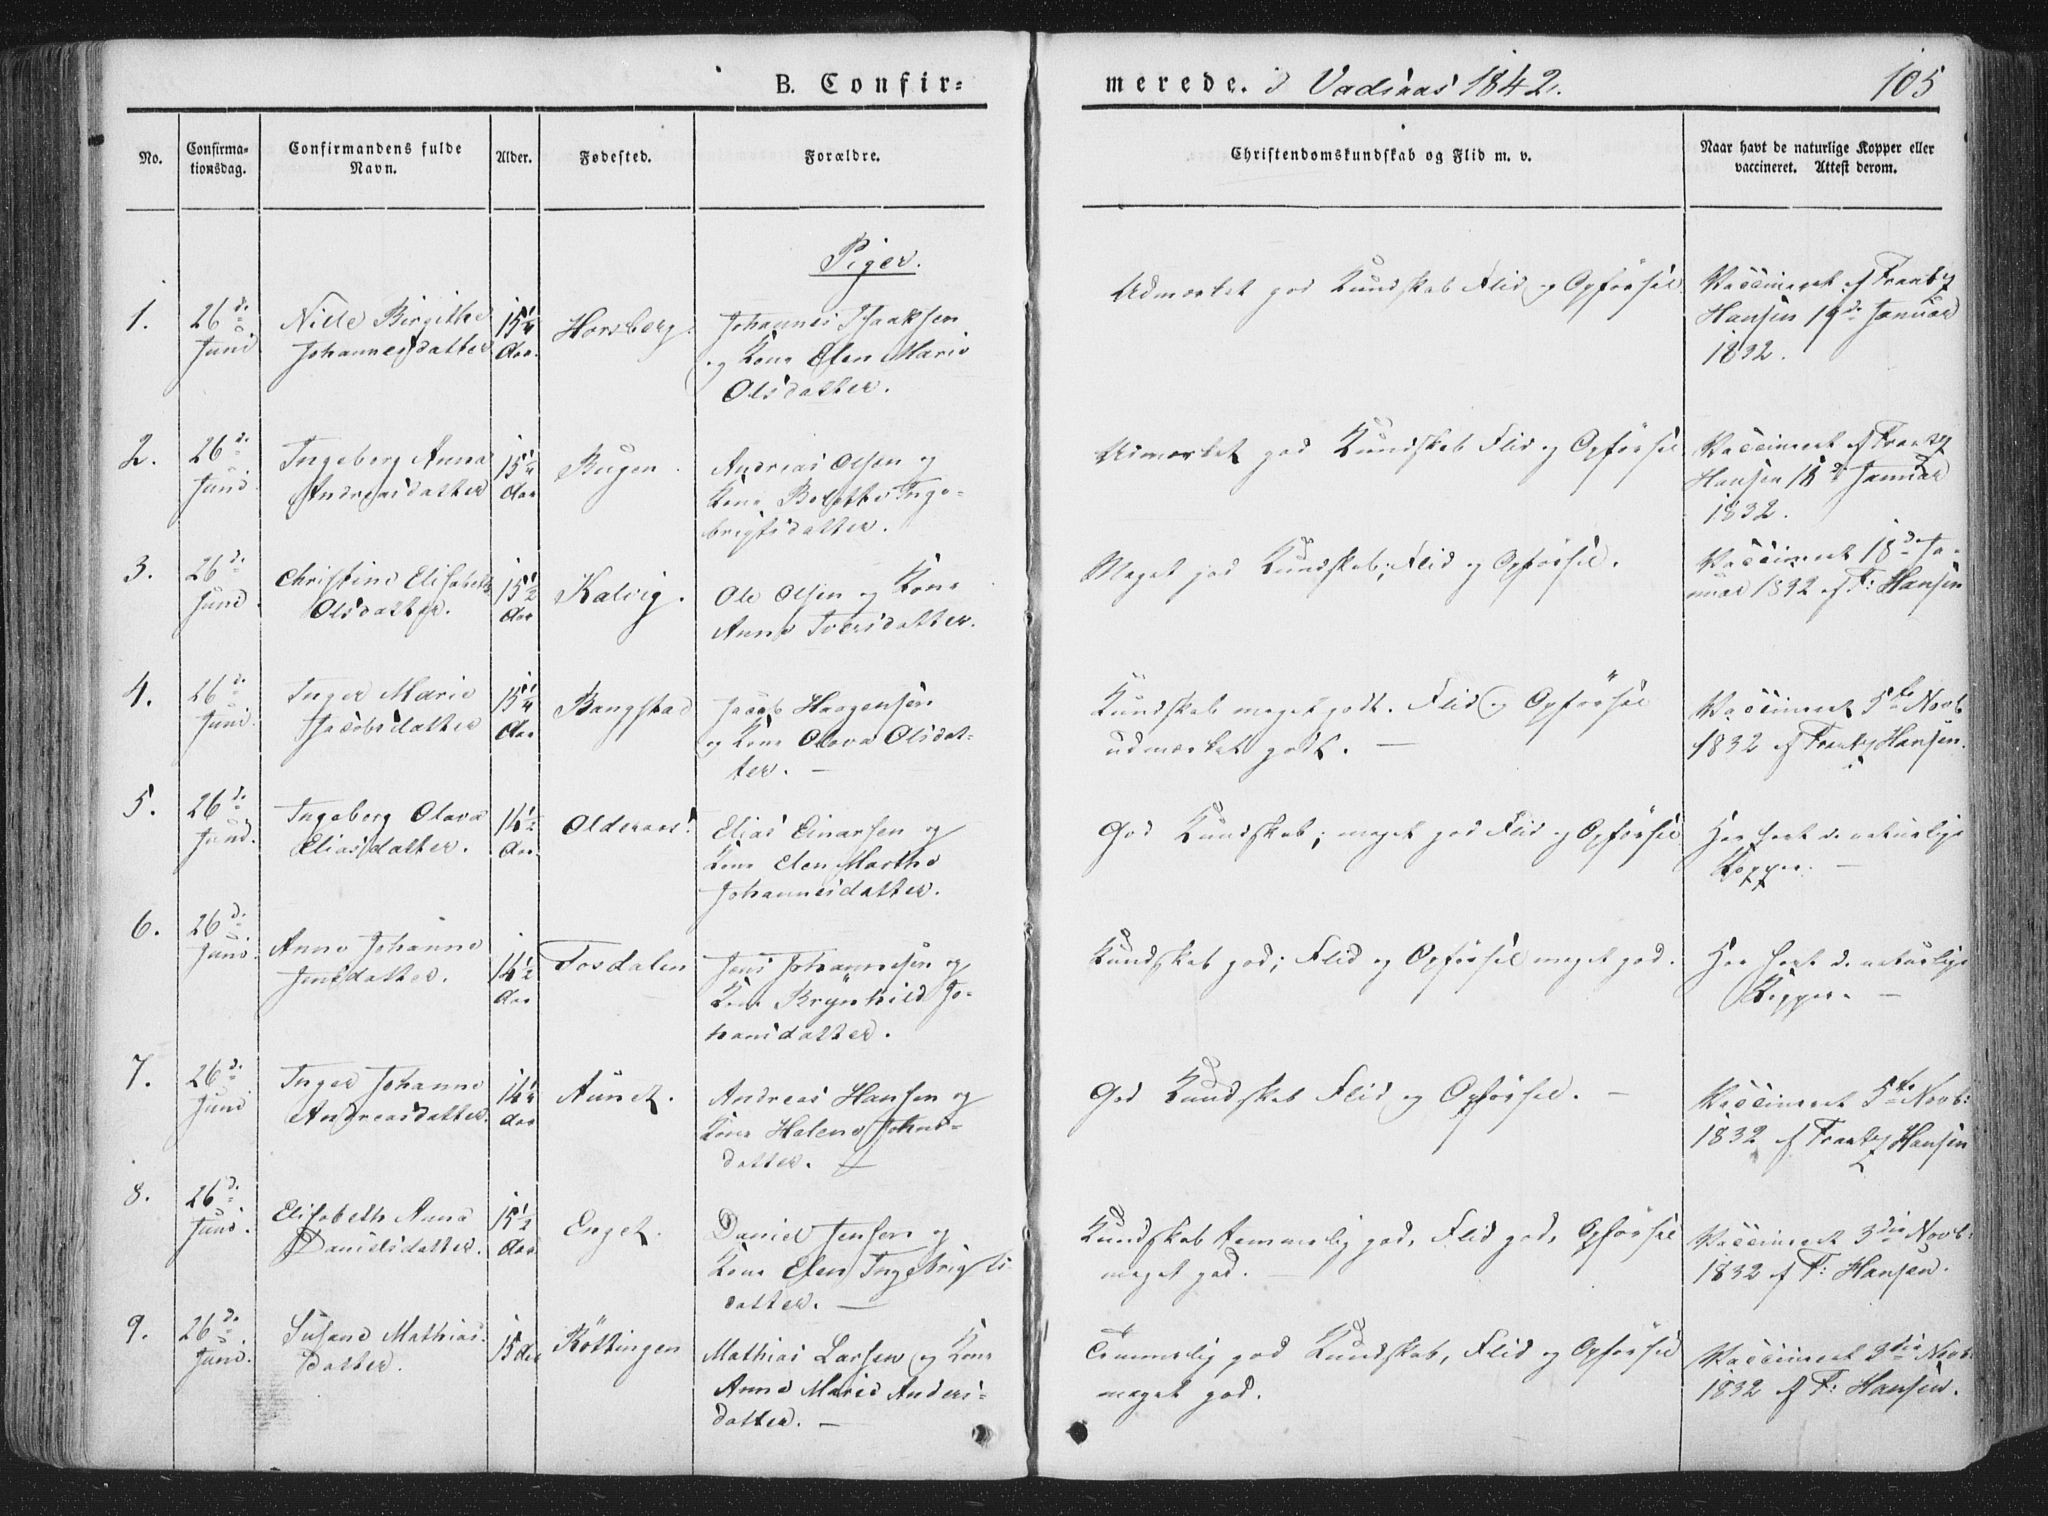 B. Confir-
merede. i Vadsaas 1842.
105
No.
Confirma-
tionsdag.
Confirmandens fulde
Navn.
Alder.
Fødested.
Forældre.
Christendomskundskab og Flid m. v.
Naar havt de naturlige Kopper eller
vaccineret. Attest derom.
Piger.
1.
26de
Juni
Nille Birgithe
Johannesdatter
15 1/4
Aar.
Horsberg.
Johannes Isaaksen
og Kone Elen Marie
Olsdatter.
Udmærket god Kundskab Flid og Opførsel
Vaccineret af Frantz
Hansen 19de Januar
1832.
2.
26de
Juni.
Ingeborg Anna
Andreasdatter
15 1/4
Aar
Bugen.
Andreas Olsen og
Kone Inge-
brigtsdatter.
Udmærket god Kundskab Flid og Opførsel
Vaccineret af Frantz
Hansen 18de Januar
1832.
3.
26de
Juni.
Christine Elisabeth
Olsdatter.
15 1/2
Aar
Kalvig.
Ole Olsen og Kone
Anne Iversdatter.
Meget god Kundskab, Flid og Opførsel.
Vaccineret 18de Ja-
nuar 1832 af F: Hansen
4.
26de
Juni.
Inger Marie
Jacobsdatter
15 1/4
Aar
Bangstad
Jacob Haagensen
og Kone Olava Olsdat-
ter. —
Kundskab meget godt. Flid og Opførsel
udmærket godt. —
Vaccineret 5te Novb
1832 af Frantz Hansen.
5.
26de
Juni.
Ingeborg Olava
Eliasdatter.
14 1/2
Aar.
Olderaas.
Elias Einarsen og
Kone Elen Marthe
Johannesdatter.
God Kundskab; meget god Flid og Opførsel
Har havt de naturlige
Kopper. —
6.
26de
Juni.
Anne Johanne
Jensdatter.
14 1/2
Aar
Fosdalen
Jens Johannesen og
Kone Brynhild Jo-
hansdatter.
Kundskab god; Flid og Opførsel meget god.
Har havt de naturlige
Kopper. —
7.
26de
Juni
Inger Johanne
Andreasdatter.
16 1/4
Aar
Aunet.
Andreas Hansen og
Kone Helene Johns-
datter. —
God Kundskab Flid og Opførsel. —
Vaccineret 5te Novb:
1832 af Frantz Hansen
8.
26de
Juni.
Elisabeth Anna
Danielsdatter.
15 1/2
Aar
Enget.
Daniel Jensen og
Kone Elen Ingebrigts-
datter. —
Kundskab temmelig god, Flid god, Opførsel
meget god. —
Vaccineret 3die Novb:
1832 af F: Hansen.
9.
26de
Juni.
Susane Mathias-
datter.
15 Aar
Røttingen
Mathias Larsen og Kone
Anne Marie Anders-
datter. —
Temmelig god Kundskab, Flid og Opførsel
meget god.
Vaccineret 3die Novb:
1832 af F: Hansen.